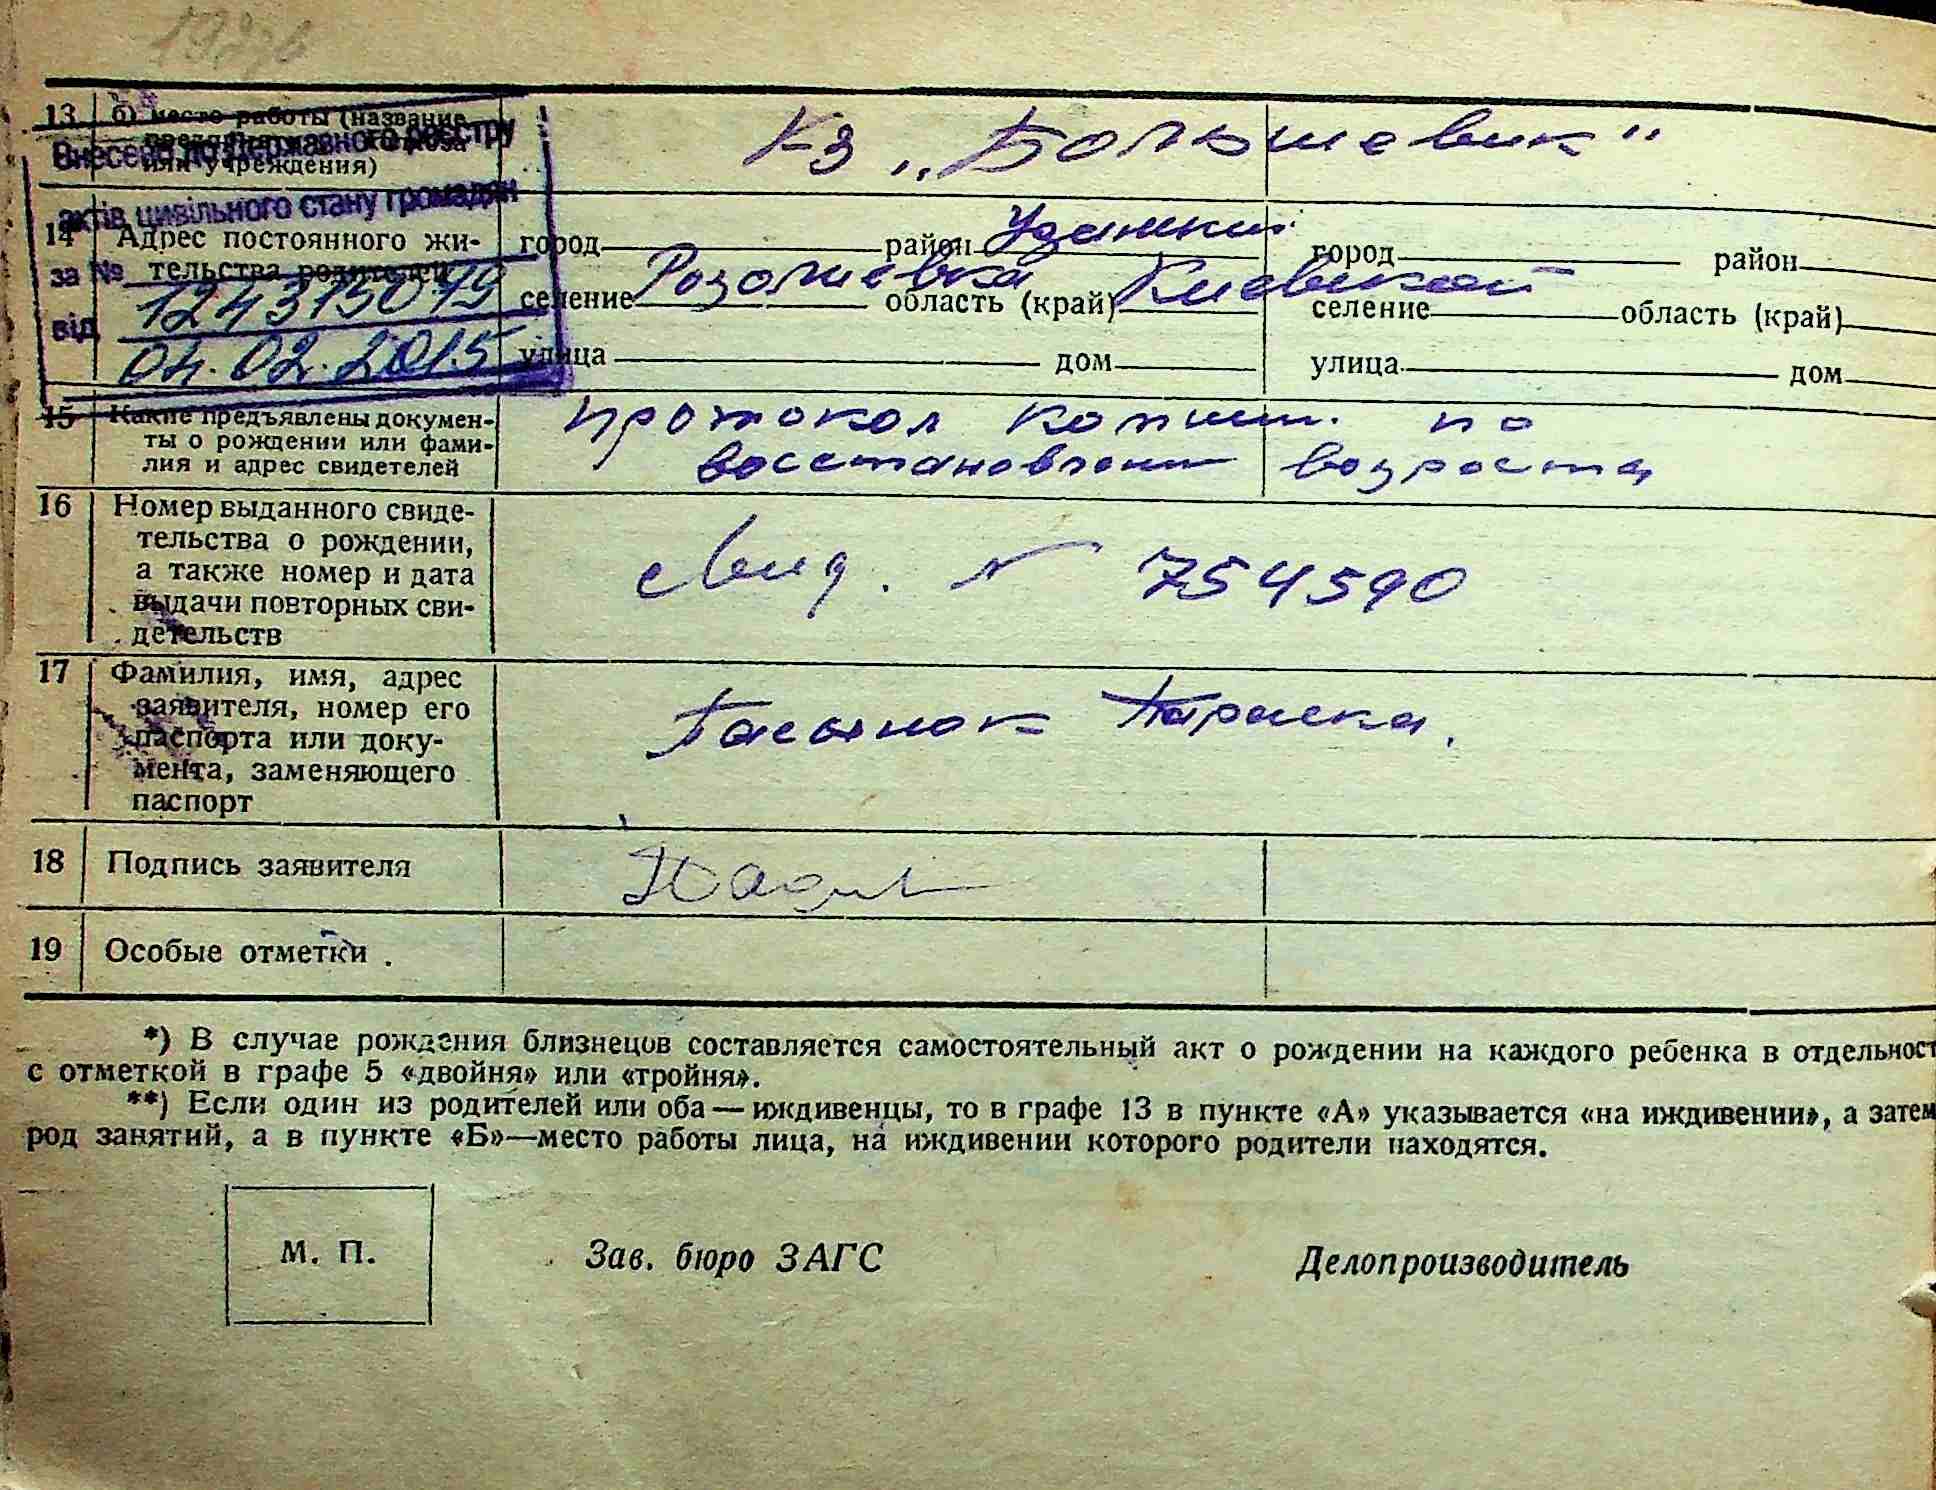 13 б) место работы (название
или учреждения)
КЗ „Большевик"
Внесено до Державного реєстру
актів цивільного стану громадян
за №
124315079
від
04.02.2015
14 Адрес постоянного жи-
тельства родителей
город район Узинский город район
селение Розалиевка область (край) Киевской селение область (край)
улица дом улица дом
15 Какие предъявлены докумен-
ты о рождении или фами-
лия и адрес свидетелей
протокол комис. по
восстановлени возроста
16 Номер выданного свиде-
тельства о рождении,
а также номер и дата
выдачи повторных сви-
детельств
Свид. N 754590
17 Фамилия, имя, адрес
заявителя, номер его
паспорта или доку-
мента, заменяющего
паспорт
Параска.
18 Подпись заявителя
19 Особые отметки .
*) В случае рождения близнецов составляется самостоятельный акт о рождении на каждого ребенка в отдельност
с отметкой в графе 5 «двойня» или «тройня».
**) Если один из родителей или оба — иждивенцы, то в графе 13 в пункте «А» указывается «на иждивении», а затем
род занятий, а в пункте «Б»—место работы лица, на иждивении которого родители находятся.
М. П. Зав. бюро ЗАГС Делопроизводитель